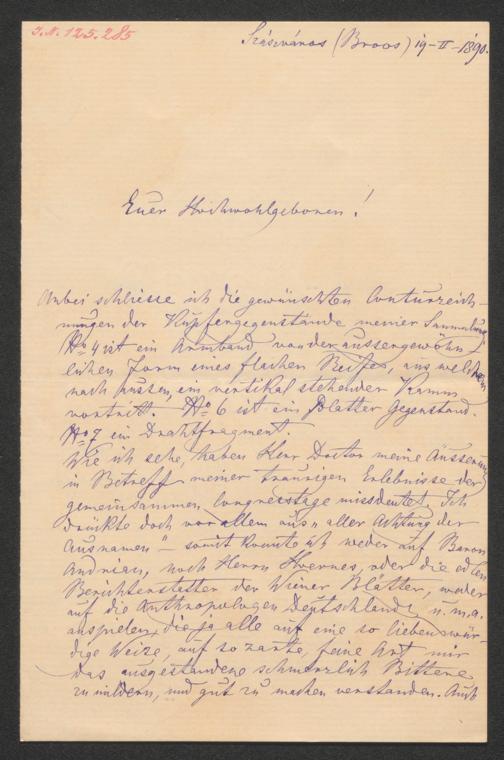 J.N. 125.285
Szászváros (Broos) 19-II-1890.
Euer Hochwohlgeboren!
Anbei schliesse ich die gewünschten Conturzeich-
nungen der Kupfergegenstände meiner Sammlung
No 4 ist ein Armband von der aussergewöhn-
lichen Form eines flachen Reifes, aus welchem
nach aussen, ein vertikal stehender Kamm
vortrett. No 6 ist ein glatter Gegenstand.
No 7 ein Drahtfragment.
Wie ich sehe, haben Herr Doctor meine Äusserung
in Betreff meiner traurigen Erlebnisse der
gemeinsammen Congresstage missdeutet. Ich
drückte doch vor allem aus "aller Achtung der
Ausnamen" – somit konnte ich weder auf Baron
Andrian, noch Herrn Hoernes, oder die edlen
Berichterstatter der Wiener Blätter, weder
auf die Anthropologen Deutschlands u. m. a.
anspielen, die ja alle auf eine so liebenswür-
dige Weise, auf so zarte, feine Art mir
das ausgestandene schmerzlich Bittere
zu mildern, und gut zu machen verstanden. Auch